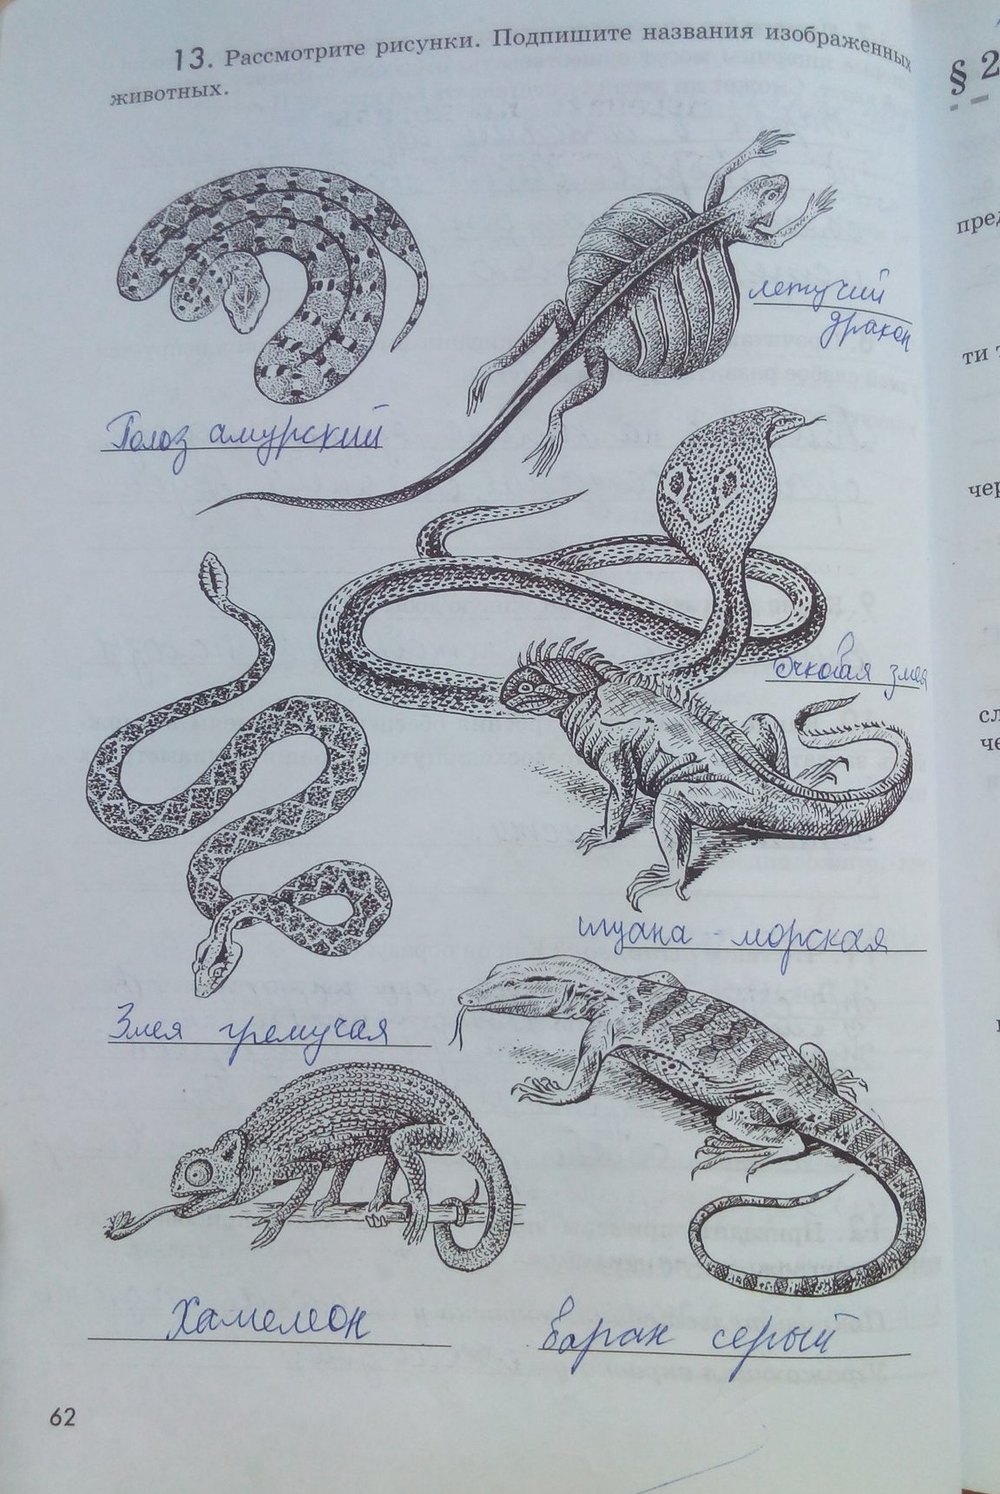 13. Рассмотрите рисунки. Подпишите названия изображенных
животных.
§ 2
пред
летучий
дракон
ти т
Полоз амурский
чер
Очковая змея
сл
че
игуана - морская
Змея гремучая
Хамелеон
варан серый
62